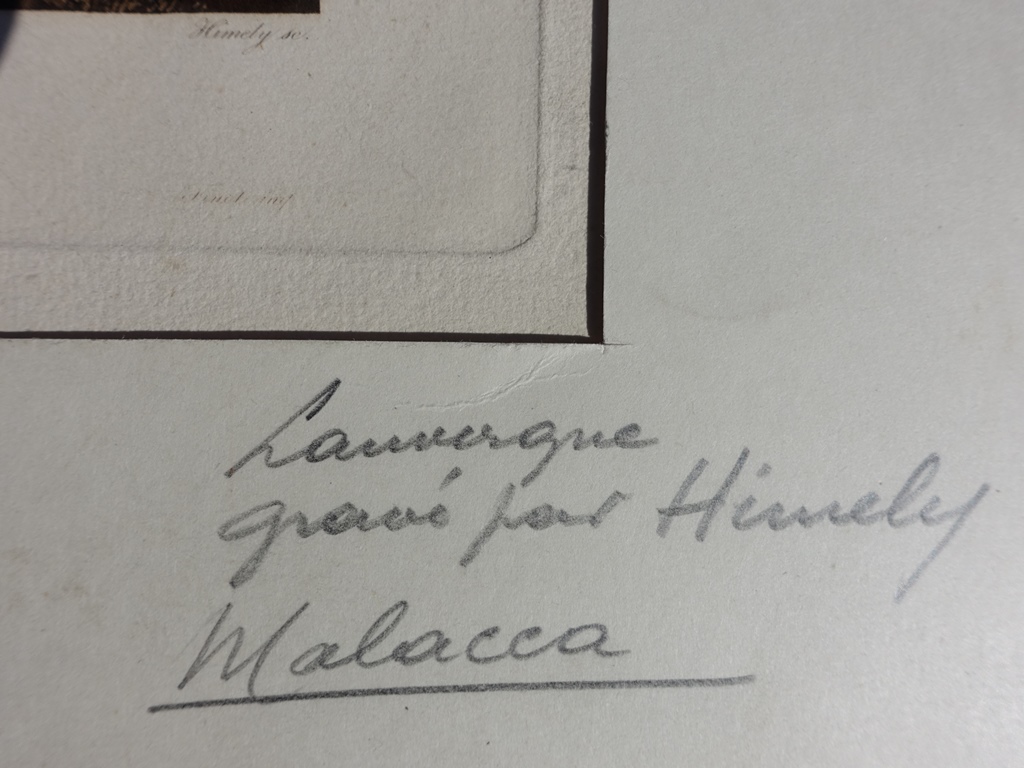 Himely sc.
Lauvergne
gravé par Himely
Malacca